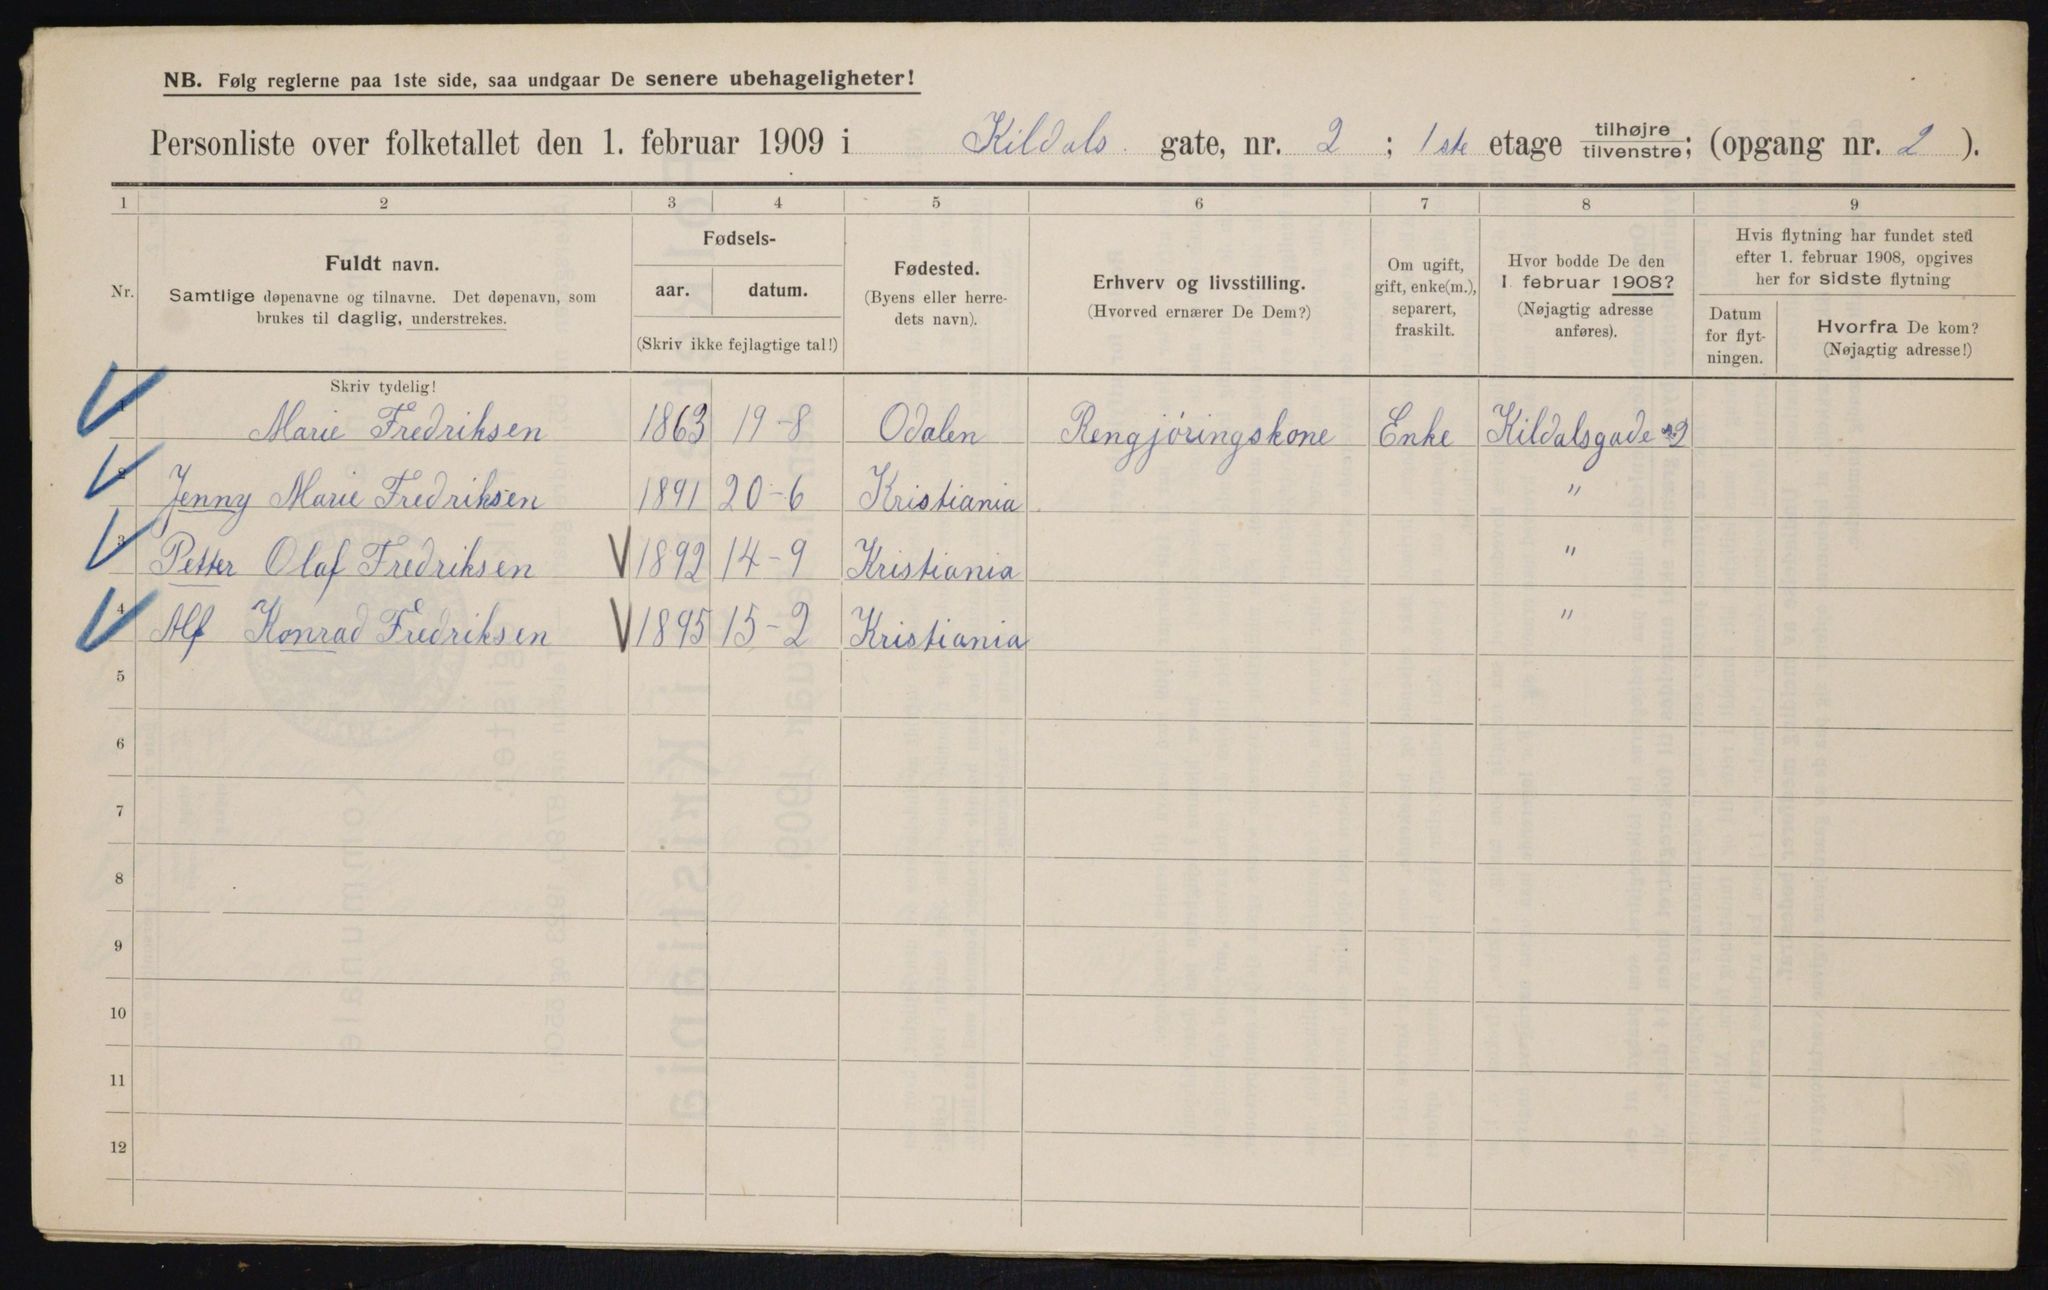 NB. Følg reglerne paa 1ste side, saa undgaar De senere ubehageligheter!
Personliste over folketallet den 1. februar 1909 i Kildals gate, nr. 2 ; 1ste etage tilhøjre/tilvenstre; (opgang nr. 2 ).
1 2 3 4 5 6 7 8 9
Nr.
Fuldt navn.
Samtlige døpenavne og tilnavne. Det døpenavn, som
brukes til daglig, understrekes.
Fødsels-
aar. datum.
(Skriv ikke fejlagtige tal!)
Fødested.
(Byens eller herre-
dets navn).
Erhverv og livsstilling.
(Hvorved ernærer De Dem?)
Om ugift,
gift, enke(m.),
separert,
fraskilt.
Hvor bodde De den
1. februar 1908?
(Nøjagtig adresse
anføres).
Hvis flytning har fundet sted
efter 1. februar 1908, opgives
her for sidste flytning
Datum
for flyt-
ningen.
Hvorfra De kom?
(Nøjagtig adresse!)
Skriv tydelig!
1 Marie Fredriksen 1863 19-8 Odalen Rengjöringskone Enke Kildalsgade 2
2 Jenny Marie Fredriksen 1891 20-6 Kristiania "
3 Petter Olaf Fredriksen 1892 14-9 Kristiania "
4 Alf Konrad Fredriksen 1895 15-2 Kristiania "
5
6
7
8
9
10
11
12